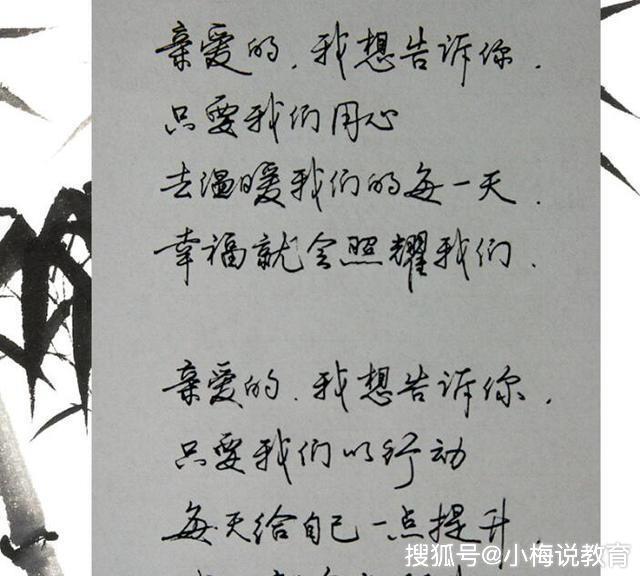 亲爱的，我想告诉你，
只要我们用心
去温暖我们的每一天，
幸福就会照耀我们，
亲爱的，我想告诉你，
只要我们以行动
每天给自己一点提升，
搜狐号@小梅说教育